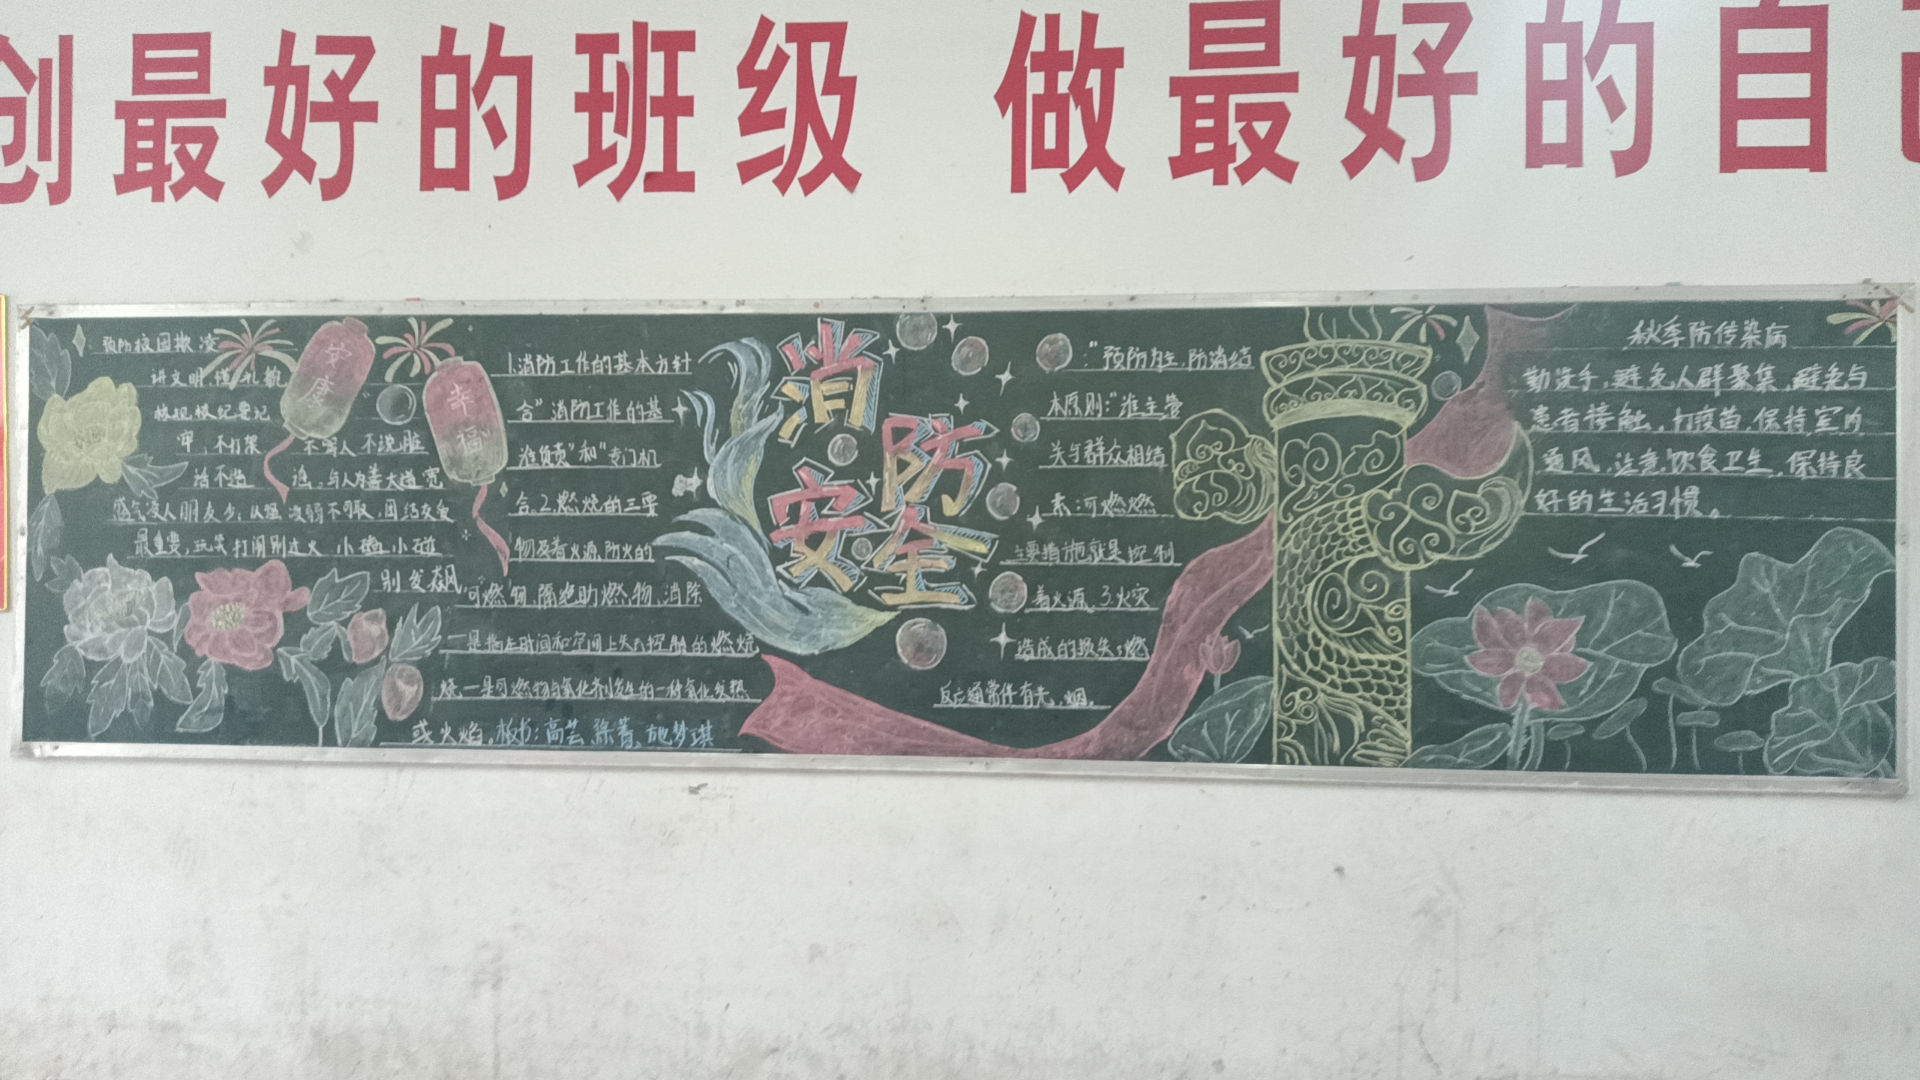 创最好的班级 做最好的自己
预防校园欺凌
讲文明,懂礼貌
校规校纪要记
牢,不打架 不骂人 不说脏
话不造 谣,与人为善大道宽
盛气凌人朋友少;以强凌弱不可取,团结友爱
最重要,玩笑打闹别过火 小磕小碰
别发飙
安康
幸福
1.消防工作的基本方针
合"消防工作的基
谁负责"和"专门机
合。2.燃烧的三要
物及着火源。防火的
可燃物,隔绝助燃物,消除
一是指在时间和空间上失去控制的燃烧
烧,一是可燃物与氧化剂发生的一种氧化发热
或火焰。板书:高芸,陈菁,施梦琪
消防安全
:"预防为主,防消结
本原则:"谁主管
关与群众相结
素:可燃燃
主要措施就是控制
着火源。3.火灾
造成的损失;燃
反应通常伴有光、烟。
秋季防传染病
勤洗手,避免人群聚集,避免与
患者接触,打疫苗,保持室内
通风,注意饮食卫生,保持良
好的生活习惯。